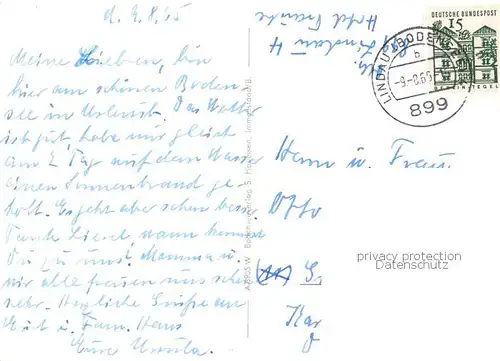 d. 9.8.65
Meine Lieben, bin
hier am schönen Boden-
see in Urlaub. Das Wetter
ist gut, habe mir gleich
am 2. Tag auf dem Wasser
einen Sonnenbrand ge-
holt. Es geht aber schon besser.
Tante Liesel wann kommst
Du zu uns? Mamma u.
wir alle freuen uns schon
sehr. Herzliche Grüße an
u. Fam. Hans
Eure Ursula.
Hotel
Lindau
DEUTSCHE BUNDESPOST
15
TEGEL
LINDAU (BODENSEE)
b
-9.-8.65
899
Herrn u. Frau
Otto
privacy protection
Datenschutz